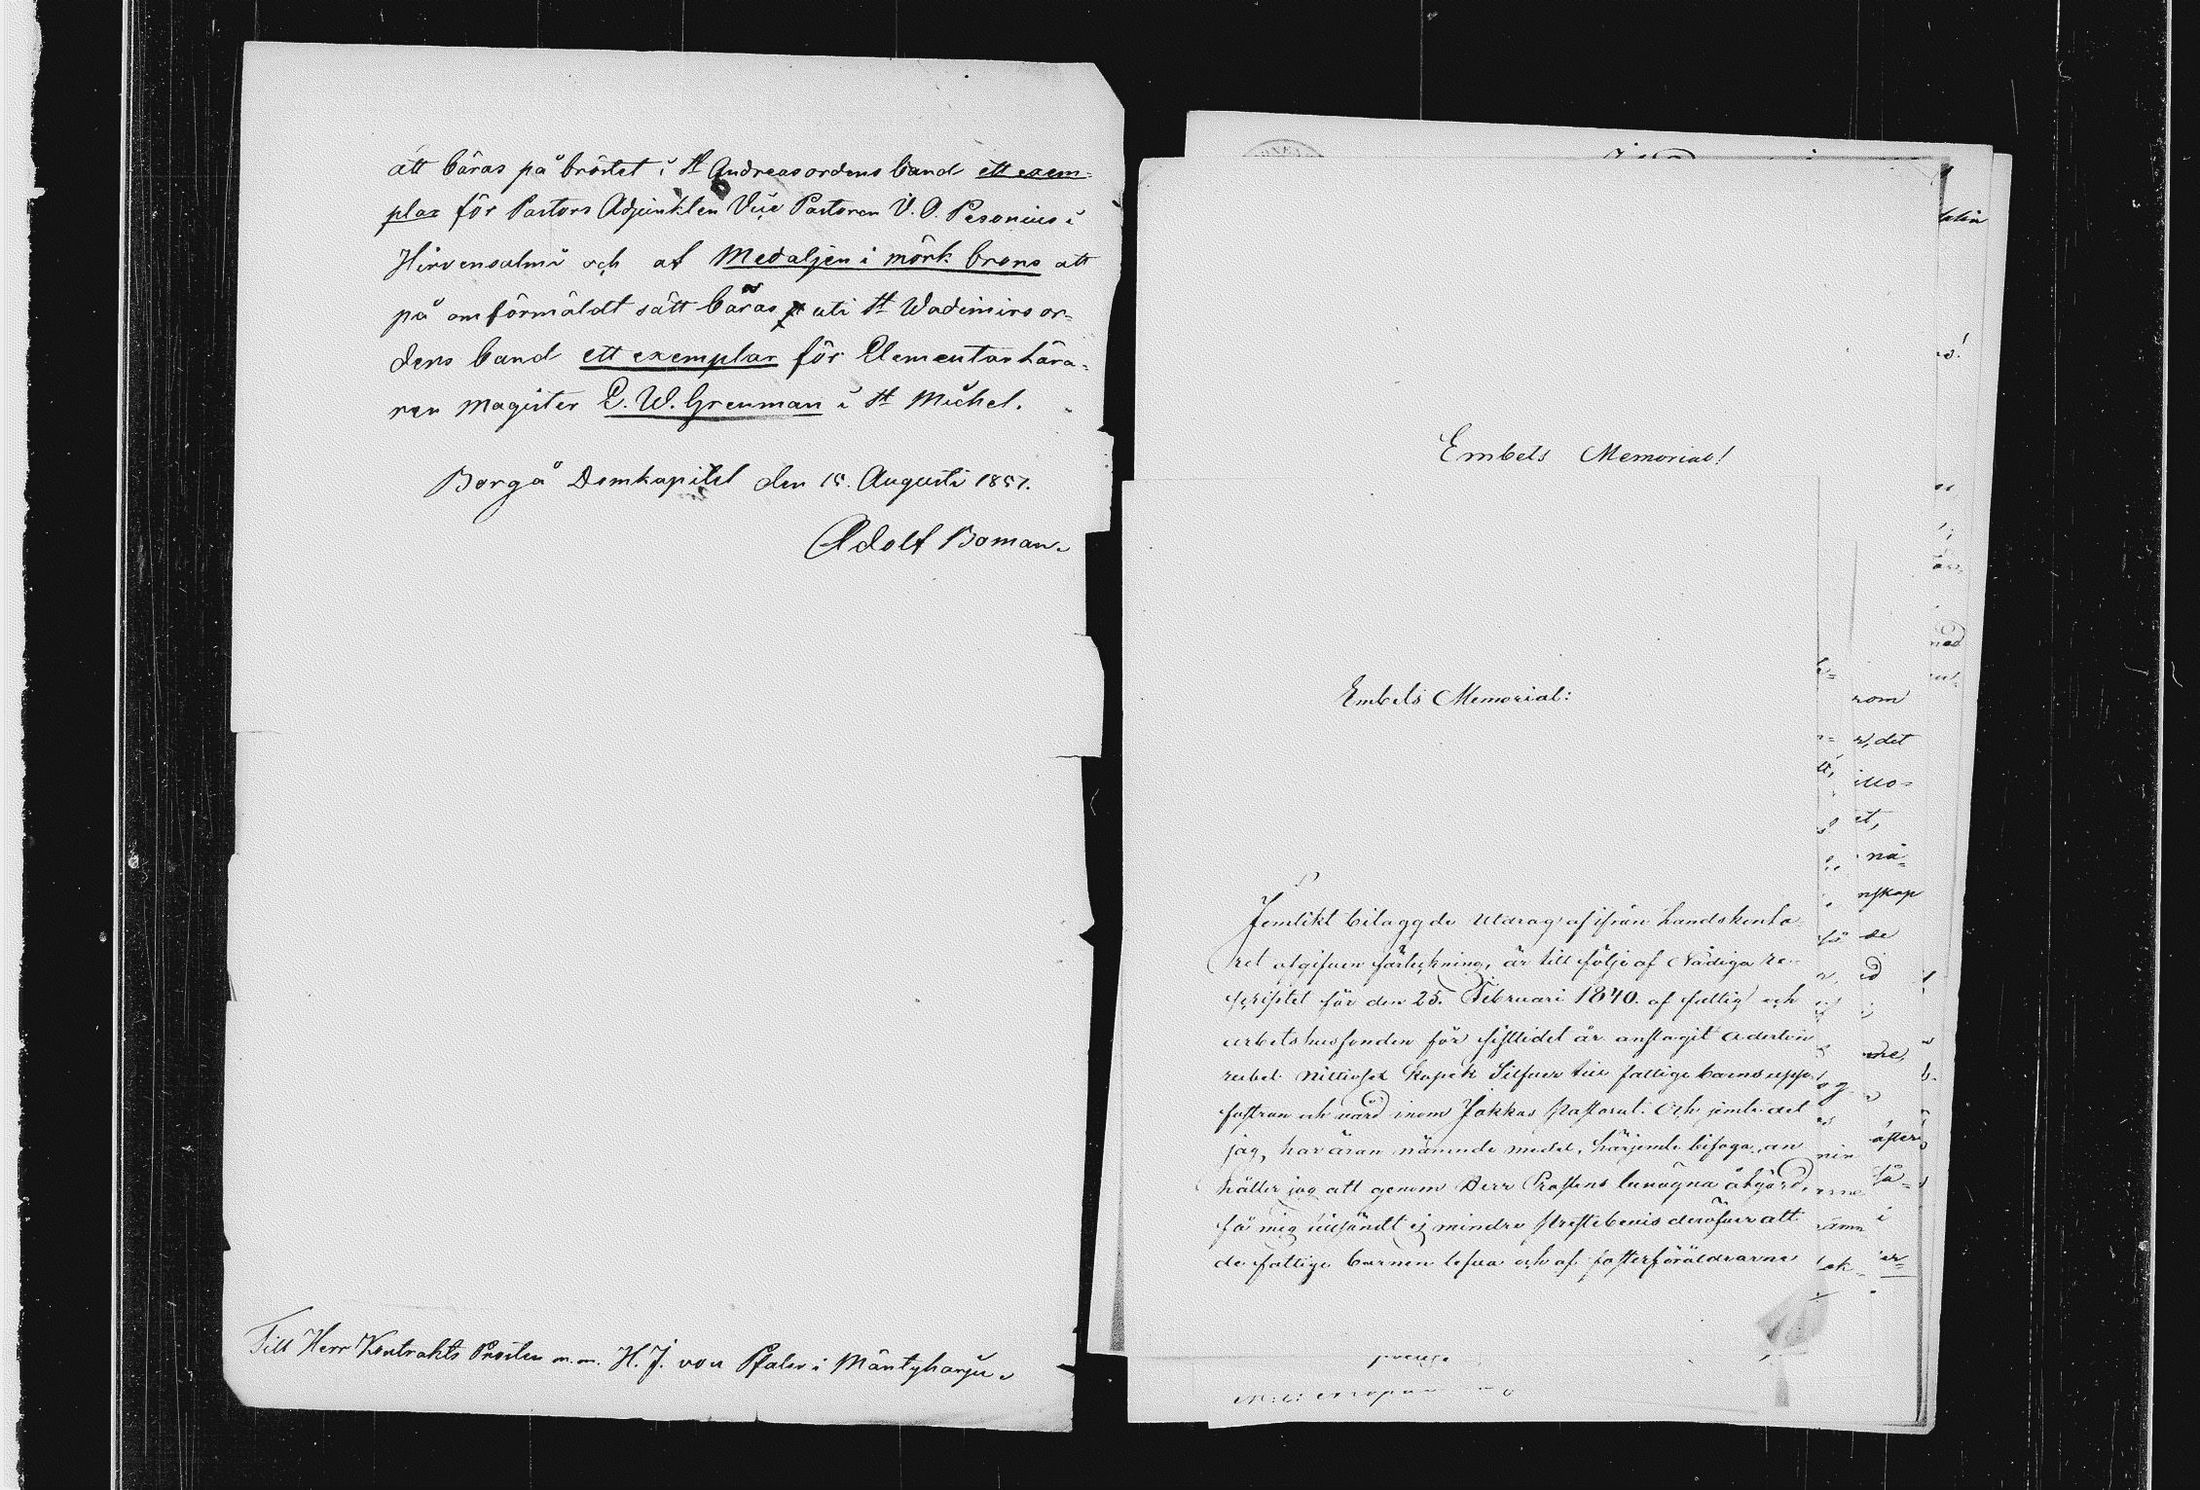 att bäras på bröstet i St Andreasordens band ett exem-
plar för Pastors Adjunkten Vice Pastoren V. O. Pesonius i
Hirvensalmi och af Medaljen i mörk brons att
på omförmäldt sätt bäras uti St Wadimirsor-
dens band ett exemplar för Elementarlära-
ren Magister E. W. Grenman i St Michel.
Borgå Domkapitel den 15. Augusti 1857.
Adolf Boman.
Till Herr Kontrakts Prosten m.m. H. J. von Pfaler i Mäntyharju.
Embets Memorial!
Embets Memorial:
Jemlikt bilaggde Utdrag af ifrån Landskonto-
ret utgifven förteckning, är till följe af Nådiga re-
scriptet för den 25. Februari 1840. af fattig och
arbetshusfonden för sistlidet år anslagit Aderton
rubel Nittiosex kopek Silfver till fattige barns upp-
fostran och vård inom Jokkas Pastorat. Och jemte det
jag har äran nämnde medel härjemte bifoga, an
håller jag att genom Herr Prostens benägna åtgärd,
få mig tillsändt ej mindre Prestebevis deröfver att
de fattige barnen lefva och af fosterföräldrarne